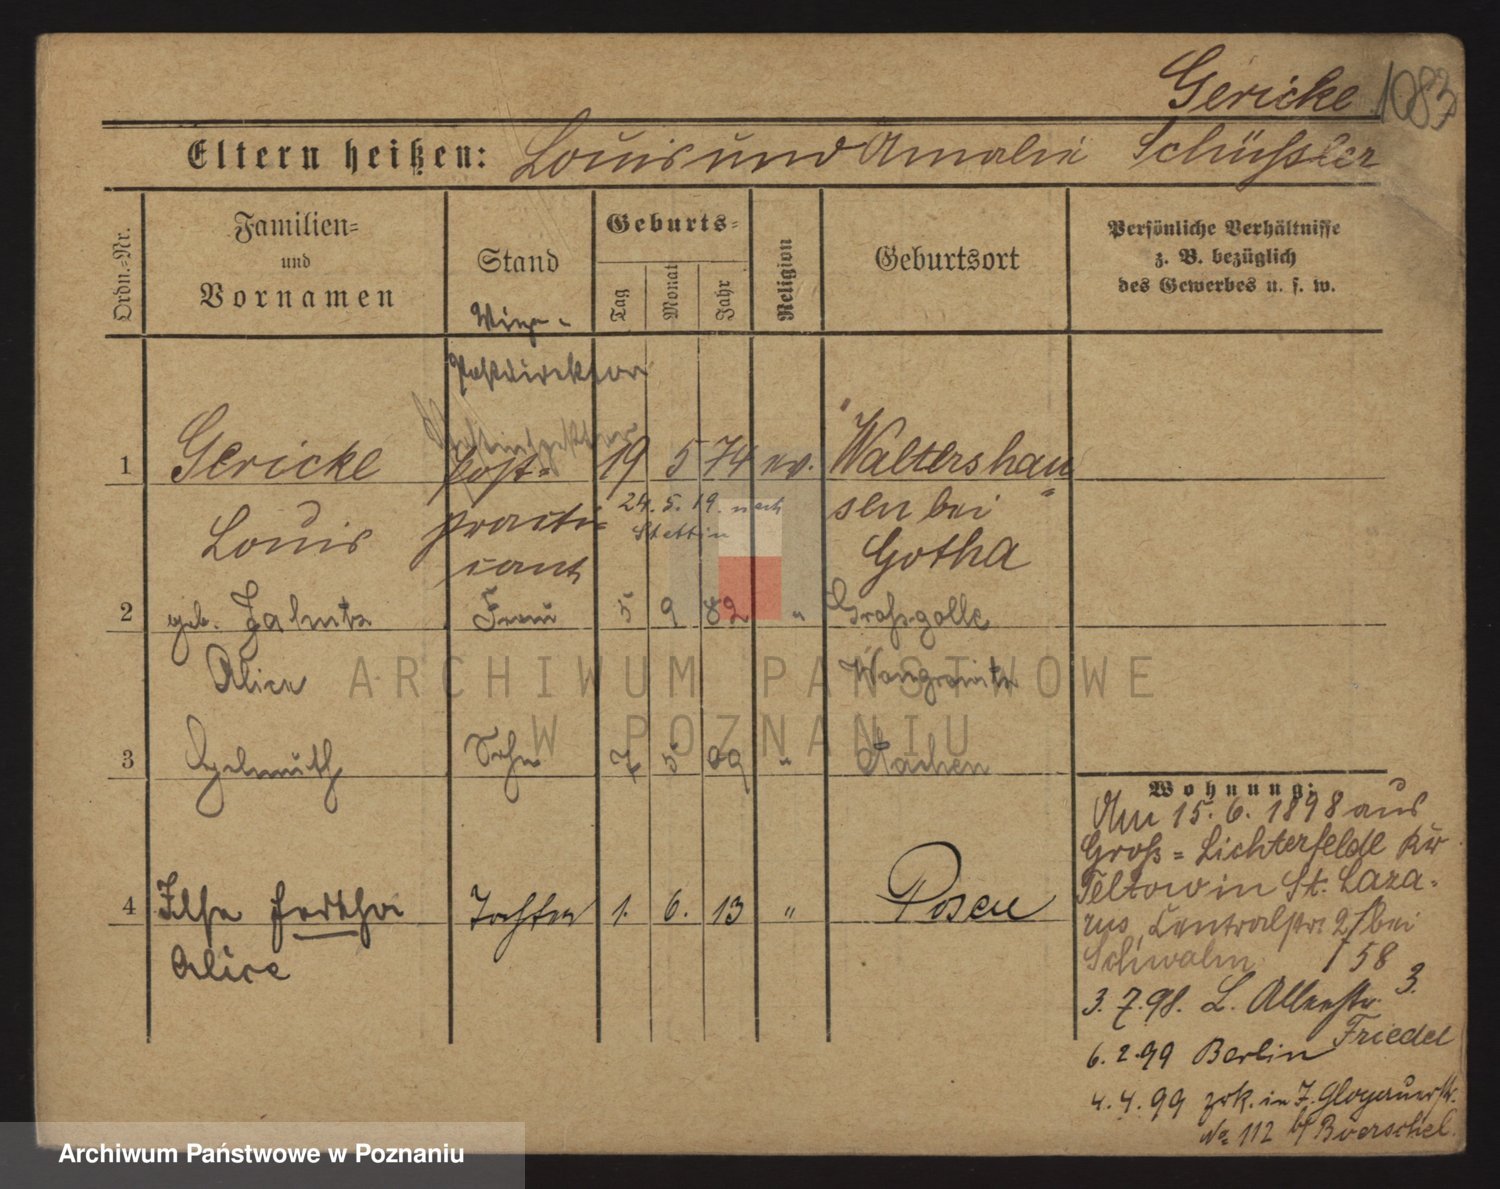 Gericke 1083
Eltern heißen: Louis und Amalie Schüßler
Ordn.-Nr.
Familien-
und
Vornamen
Stand
Geburts-
Tag
Monat
Jahr
Religion
Geburtsort
Persönliche Verhältnisse
z. B. bezüglich
des Gewerbes u. s. w.
Postdirektor
Postinspektor
1 Gericke Post- 19 5 74 ev. Waltershau
24. 5. 19. nach
Stettin
Louis practi- sen bei
cant Gotha
2 geb. Jahntz Frau 5 9 82 " Großgolle
Alice Wongrowitz
3 Helmuth Sohn 7 5 09 " Aachen
Wohnung:
Am 15. 6. 1898 aus
Groß-Lichterfelde Kr
Teltow in St. Laza-
rus, Centralstr. 2 bei
Schwalm 58
4 Ilse Alice Tochter 1. 6. 13 " Posen
3. 7. 98. L. Allerstr. 3.
Friedel
6. 2. 99 Berlin
4. 4. 99 zrk. in J. Glogauerstr.
No 112 b/ Boerschel.
ARCHIWUM PAŃSTWOWE
W POZNANIU
Archiwum Państwowe w Poznaniu